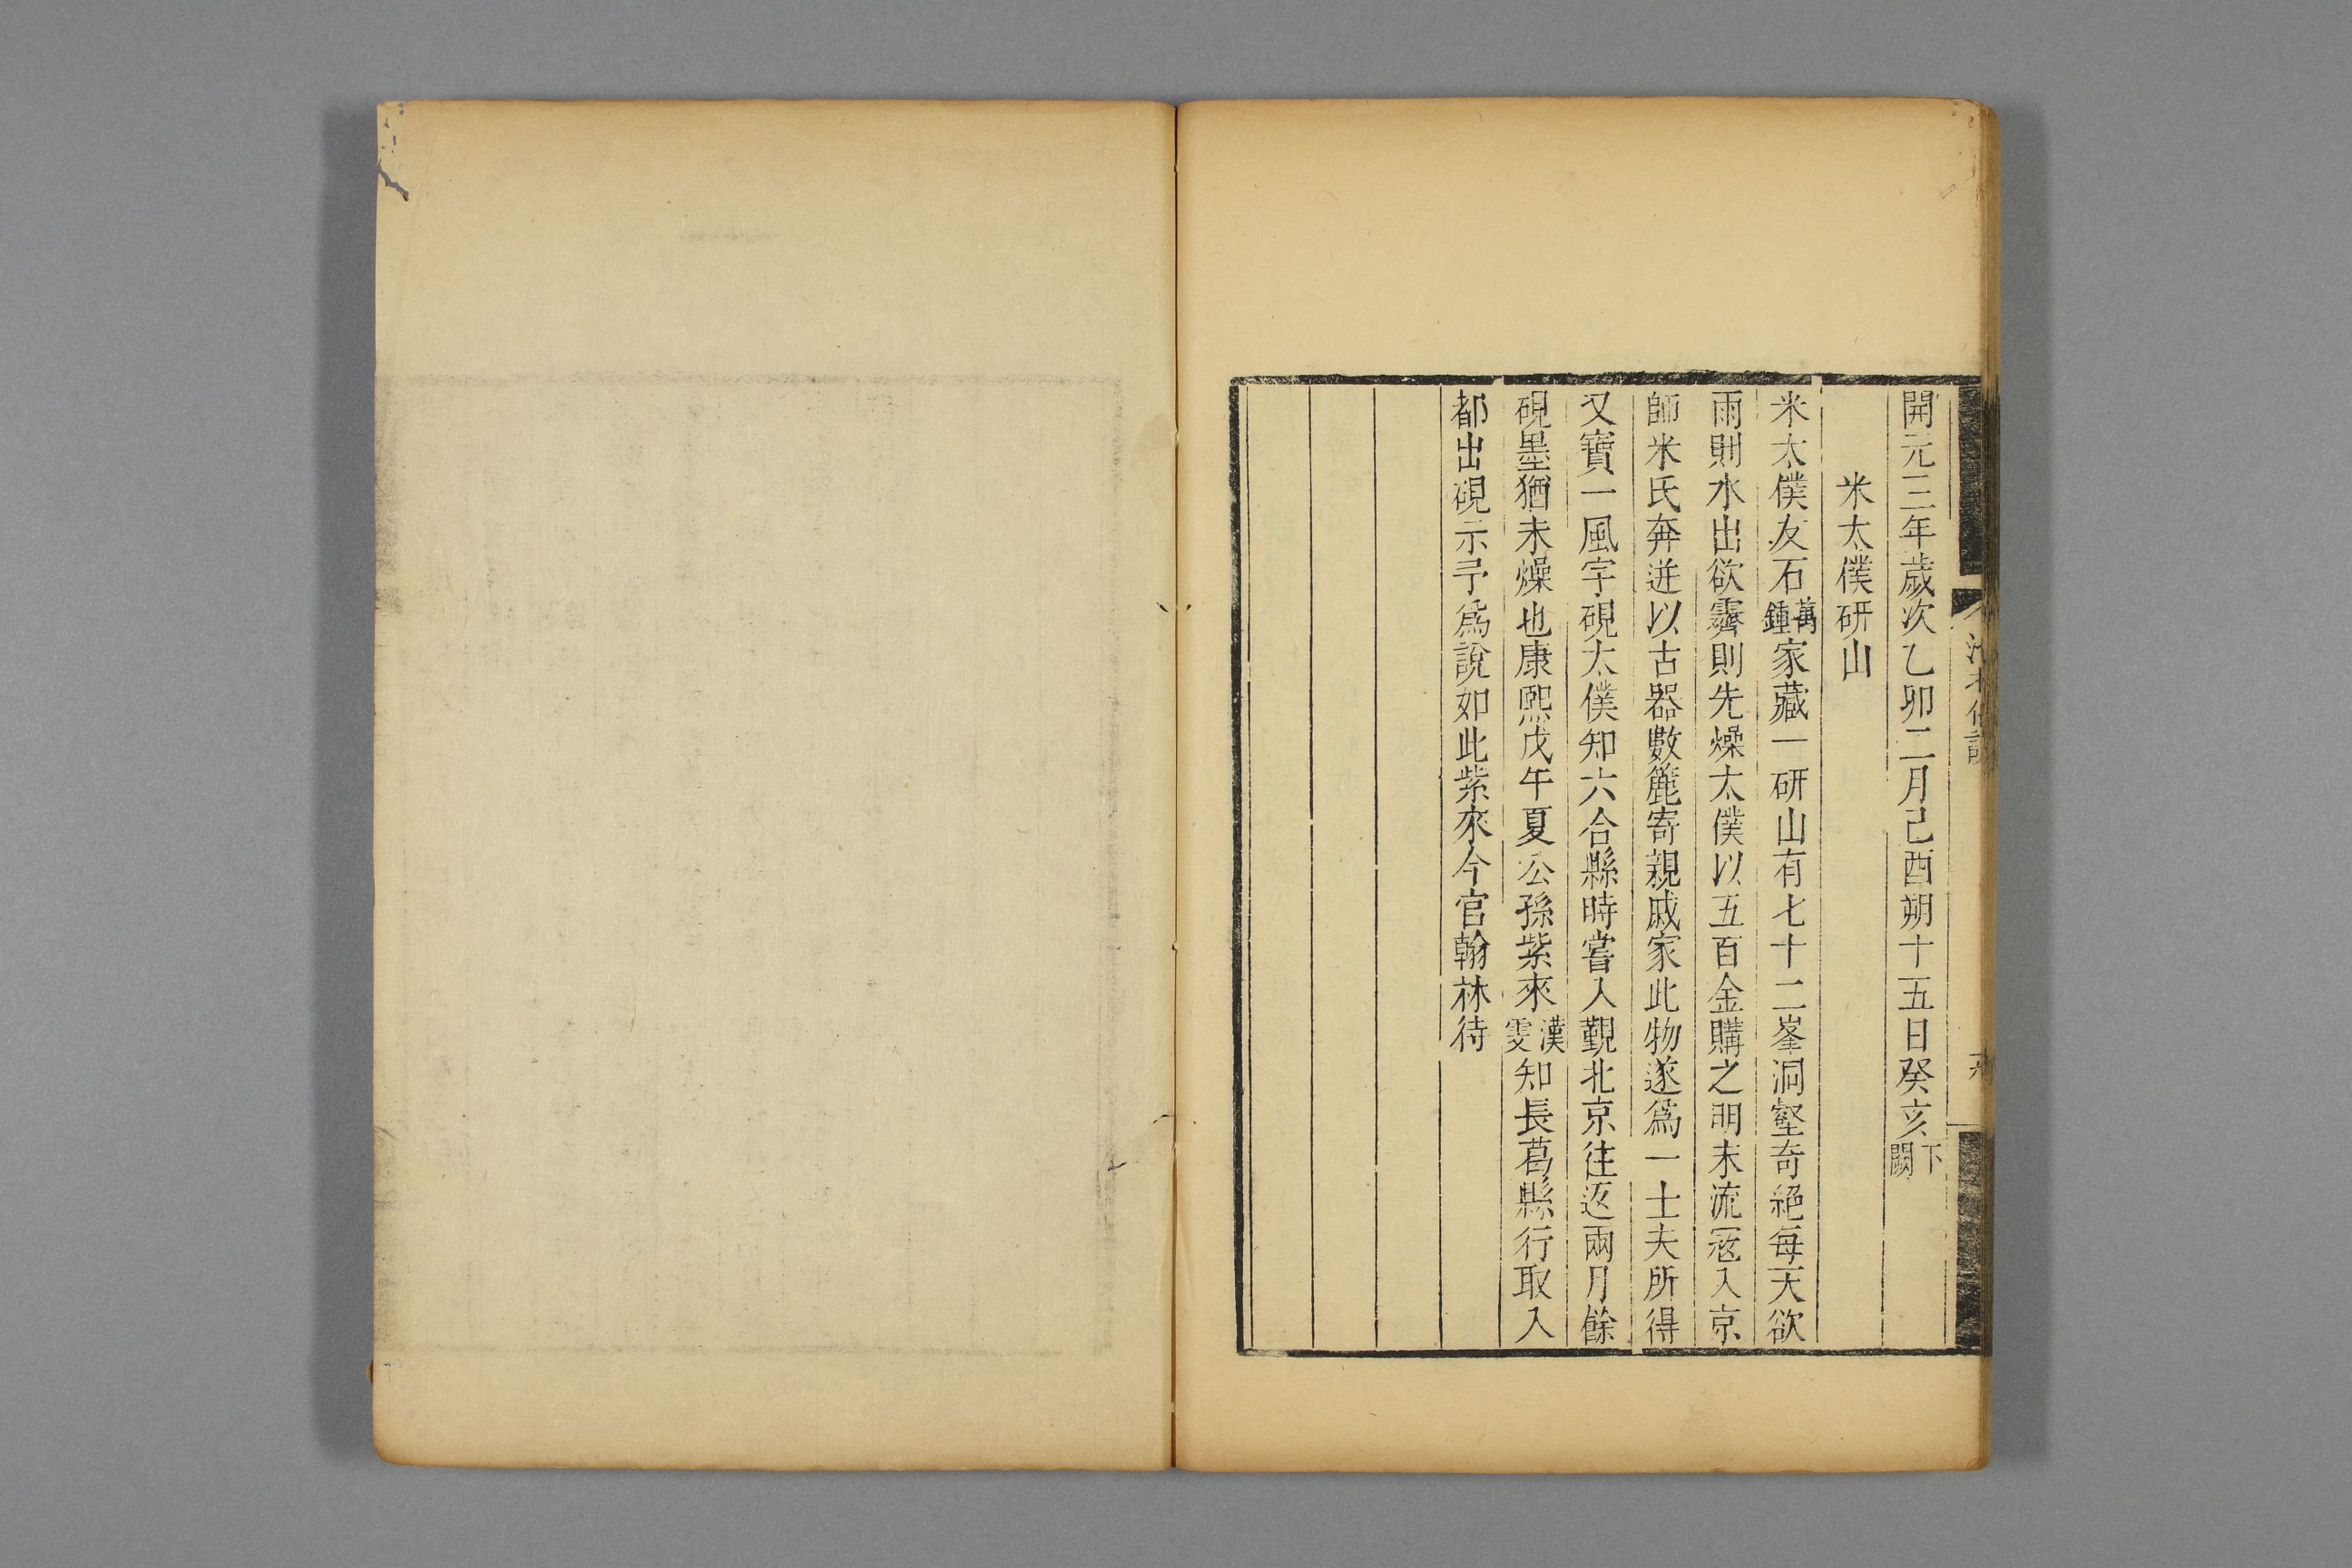 開元三年歲次乙卯二月己酉朔十五日癸亥下闕
米太僕研山
米太僕友石萬鍾家藏一研山有七十二峯洞壑奇絕每天欲
雨則水出欲霽則先燥太僕以五百金購之明末流寇入京
師米氏奔迸以古器數簏寄親戚家此物遂爲一士夫所得
又寶一風字硯太僕知六合縣時嘗入覲北京往返兩月餘
硯墨猶未燥也康熙戊午夏公孫紫來漢雯知長葛縣行取入
都出硯示予爲說如此紫來今官翰林待